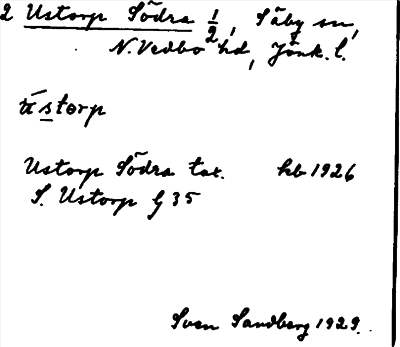 2 Ustorp Södra 1/2, Säby sn,
N. Vedbo hd, Jönk. l.
ústorp
Ustorp Södra tax. hb 1926
S. Ustorp G 35
Sven Sandberg 1929.